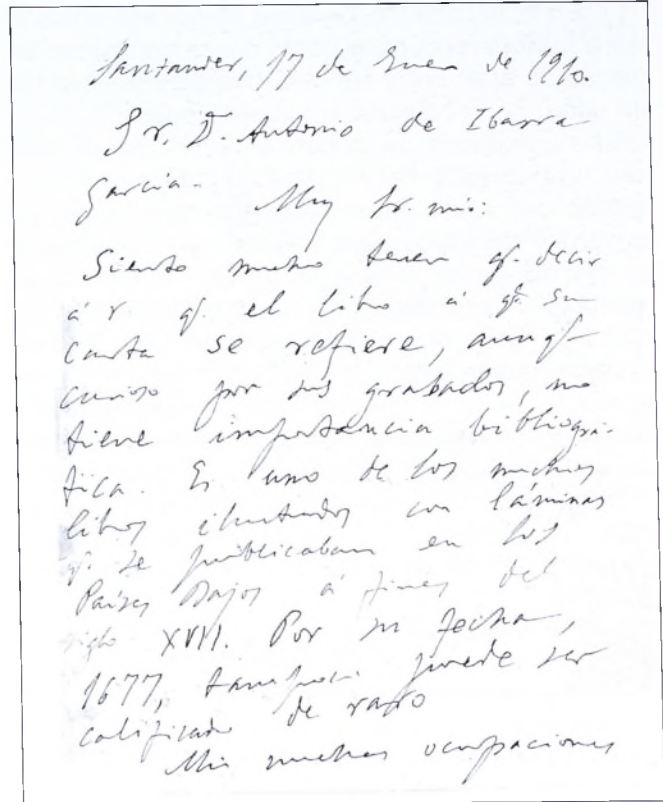 Santander, 17 de Enero de 1910.
Sr. D. Antonio de Ibarra
García.- Muy Sr. mio:
Siento mucho tener q. decir
á V q. el libro á q. su
carta se refiere, aunq.
curioso por sus grabados, no
tiene importancia bibliográ-
fica. Es uno de los muchos
libros ilustrados con láminas
q. se publicaban en los
Países Bajos á fines del
siglo XVII. Por su fecha,
1677, tampoco puede ser
calificado de raro
Mis muchas ocupaciones